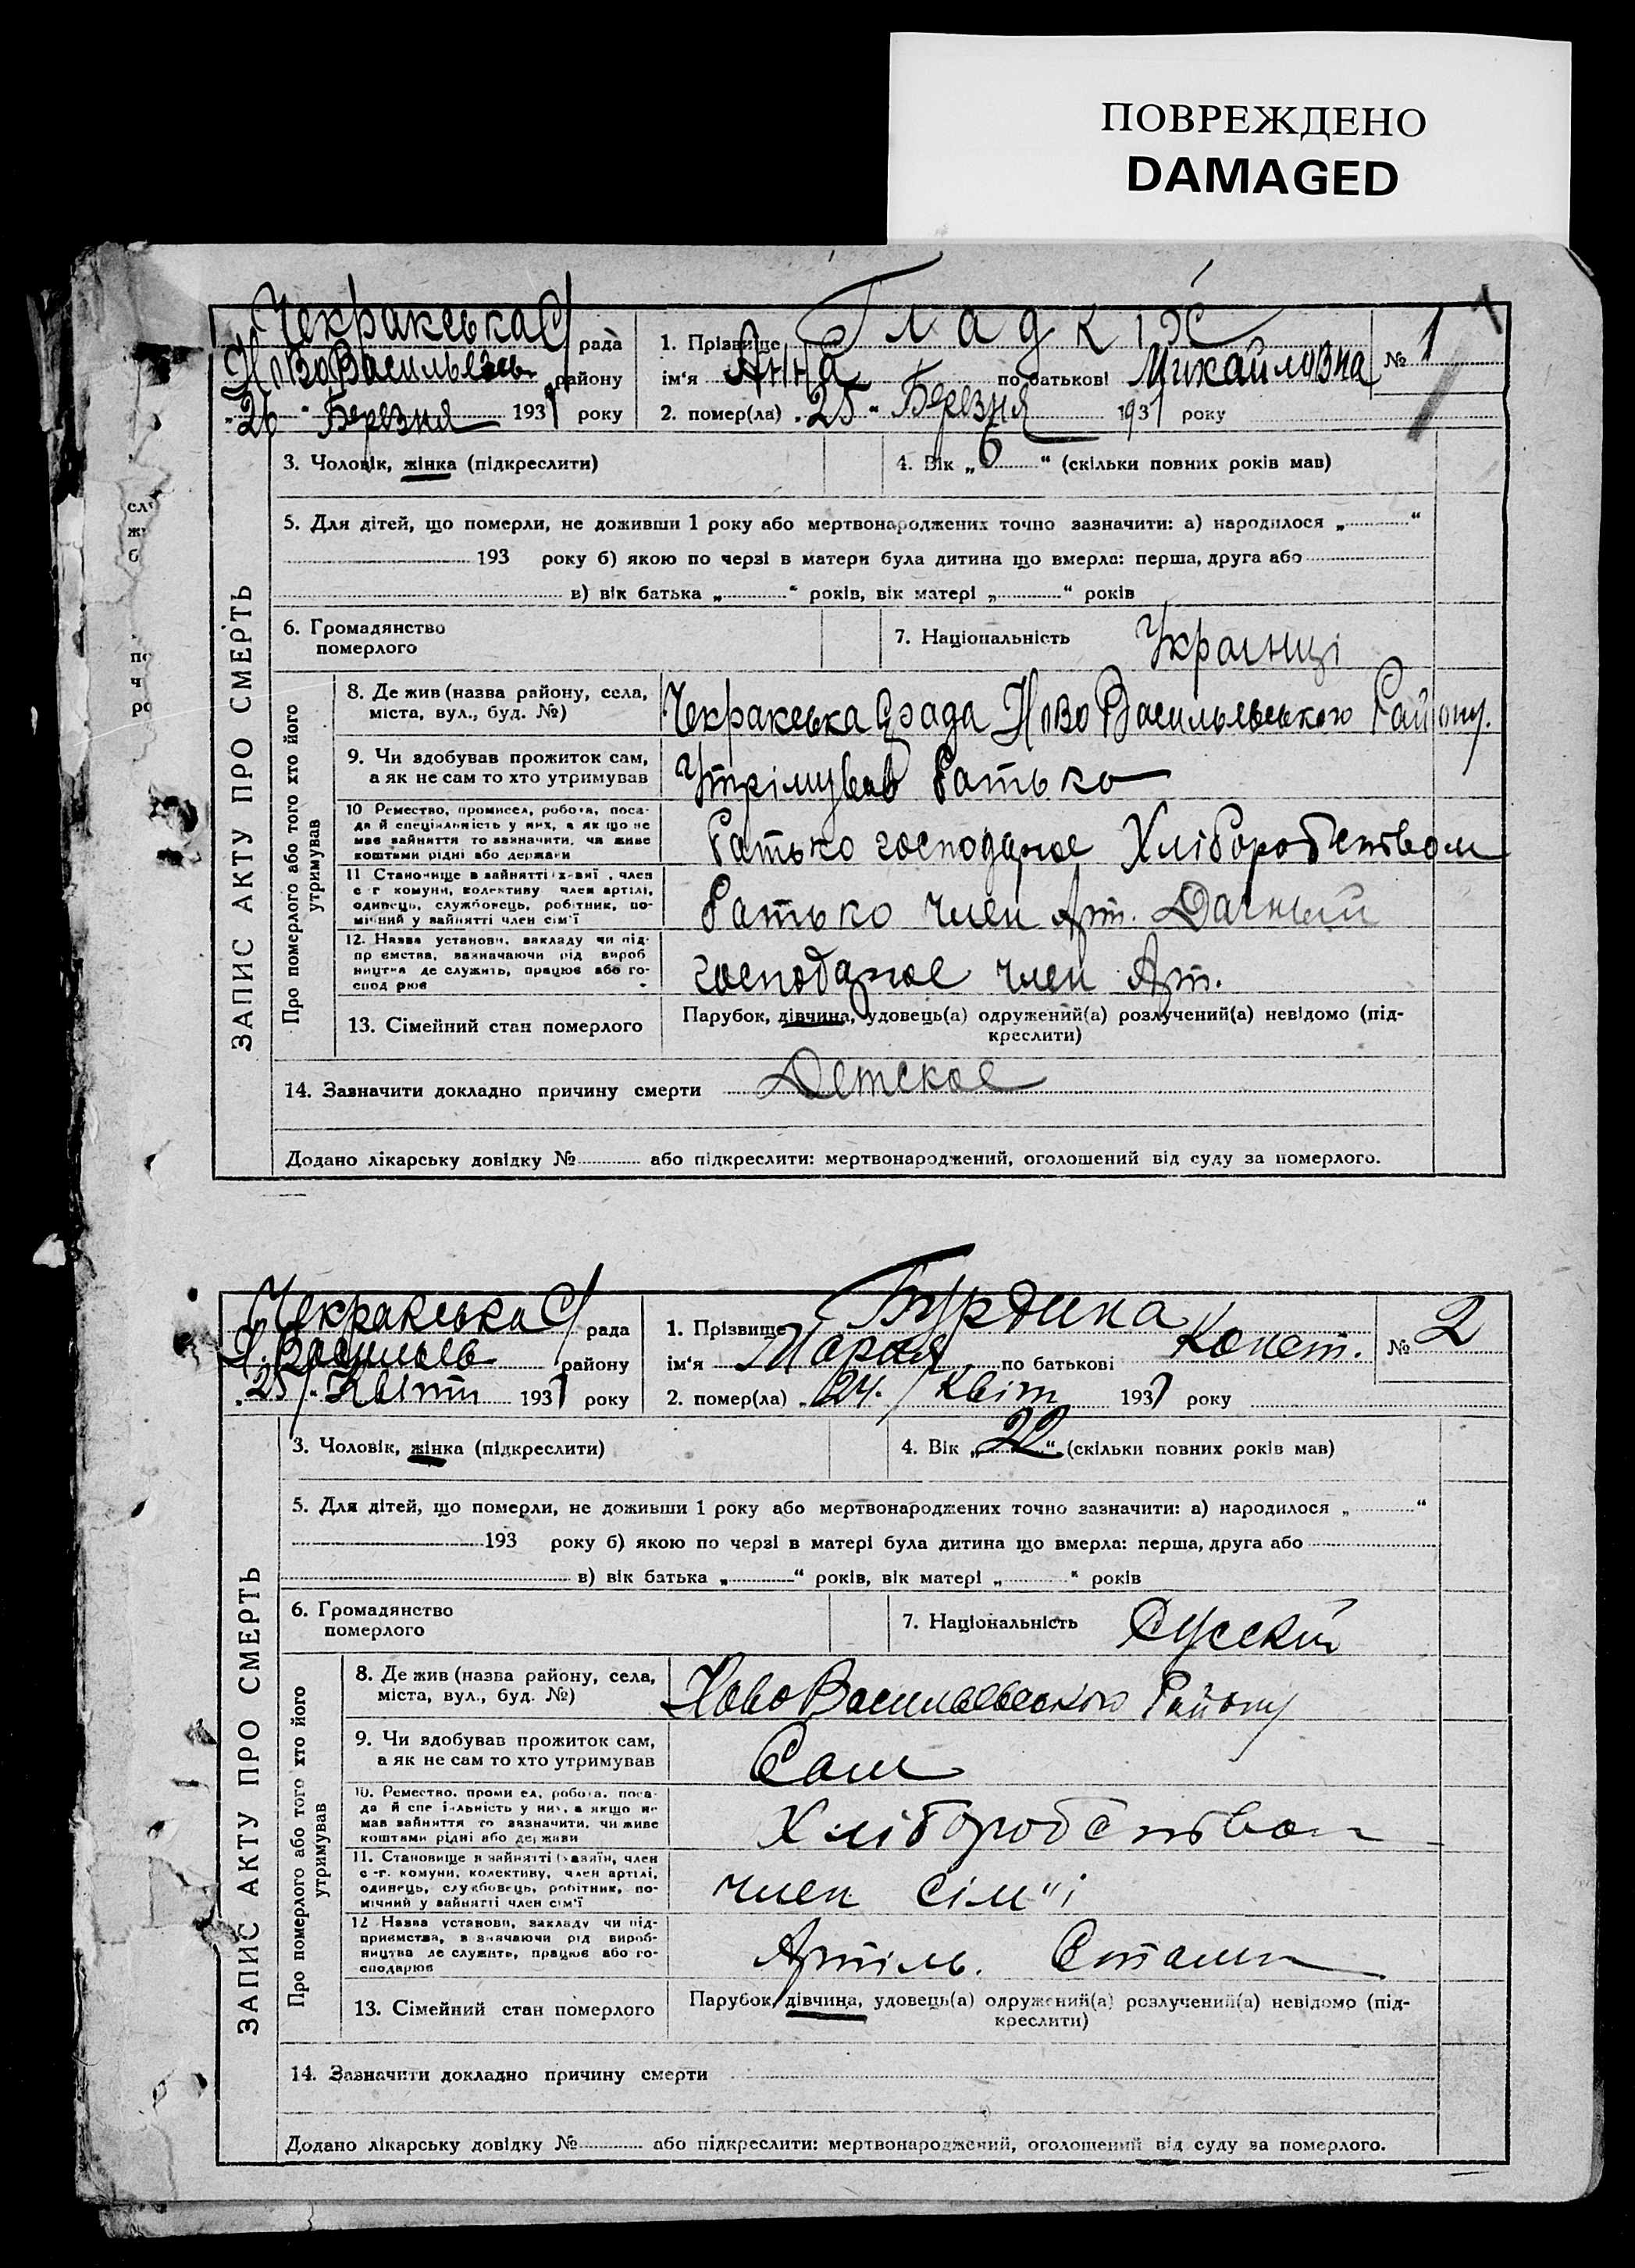 ПОВРЕЖДЕНО
DAMAGED
Чекракська С/рада
НовоВасильевськ району
„26“ Березня 1931 року
1. Прізвище Гладкіх
ім'я Анна по батькові Михайловна
№ 1
2. помер(ла) „25“ Березня 1931 року
3. Чоловік, жінка (підкреслити)
4. Вік „6“ (скільки повних років мав)
5. Для дітей, що померли, не доживши 1 року або мертвонароджених точно зазначити: а) народилося „ “
193 року б) якою по черзі в матери була дитина що вмерла: перша, друга або
в) вік батька „ “ років, вік матері „ “ років
ЗАПИС АКТУ ПРО СМЕРТЬ
6. Громадянство
померлого
7. Національність Украінці
Про померлого або того хто його
утримував
8. Де жив (назва району, села,
міста, вул., буд. №)
Чекракська С/рада НовоВасильевського Району.
9. Чи здобував прожиток сам,
а як не сам то хто утримував
Утрімував Батько
10 Ремество, промисел, робота, поса-
да й спеціяльність у них, а як що не
має зайняття то зазначити, чи живе
коштами рідні або держави
Батько господарює Хліборобством
11 Становище в зайнятті х-вяї, член
с-г комуни, колективу член артілі,
одинець, службовець, робітник, по-
мічний у зайнятті член сім'ї
Батько член Арт. Дачный
12. Назва установи, закладу чи під-
приємства, зазначаючи рід вироб
ництва де служить, працює або го-
сподарює
господарює член Арт.
13. Сімейний стан померлого
Парубок, дівчина, удовець(а) одружений(а) розлучений(а) невідомо (під-
креслити)
14. Зазначити докладно причину смерти Детское
Додано лікарську довідку № або підкреслити: мертвонароджений, оголошений від суду за померлого.
Чекракська С/рада
Н. Васильев району
„25“ Квітн 1931 року
1. Прізвище Бурдина
ім'я Мария по батькові Конст.
№ 2
2. помер(ла) „24“ Квітн 1931 року
3. Чоловік, жінка (підкреслити)
4. Вік „22“ (скільки повних років мав)
5. Для дітей, що померли, не доживши 1 року або мертвонароджених точно зазначити: а) народилося „ “
193 року б) якою по черзі в матері була дитина що вмерла: перша, друга або
в) вік батька „ “ років, вік матері „ “ років
ЗАПИС АКТУ ПРО СМЕРТЬ
6. Громадянство
померлого
7. Національність Русский
Про померлого або того хто його
утримував
8. Де жив (назва району, села,
міста, вул., буд. №)
НовоВасильевського Району
9. Чи здобував прожиток сам,
а як не сам то хто утримував
Сам
10. Ремество, промисел, робота, поса-
да й спеціяльність у них, а якщо не
має зайняття то зазначити, чи живе
коштами рідні або держави
Хліборобством
11. Становище в зайнятті (хазяїн, член
с-г. комуни, колективу, член артілі,
одинець, службовець, робітник, по-
мічний у зайнятті член сім'ї
член сім"ї
12 Назва установи, закладу чи під-
приємства, зазначаючи рід вироб-
ництва де служить, працює або го-
сподарює
Артіль. Сталин
13. Сімейний стан померлого
Парубок, дівчина, удовець(а) одружений(а) розлучений(а) невідомо (під-
креслити)
14. Зазначити докладно причину смерти
Додано лікарську довідку № або підкреслити: мертвонароджений, оголошений від суду за померлого.